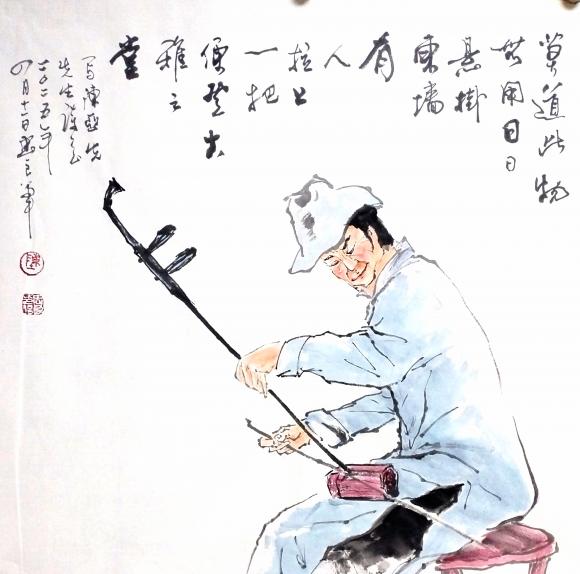 莫道此物
無用日日
悬掛
東墙
有
人
拉上
一把
便登大
雅之
堂
写陳亞先
先生詩意
二〇二五年
四月十一日